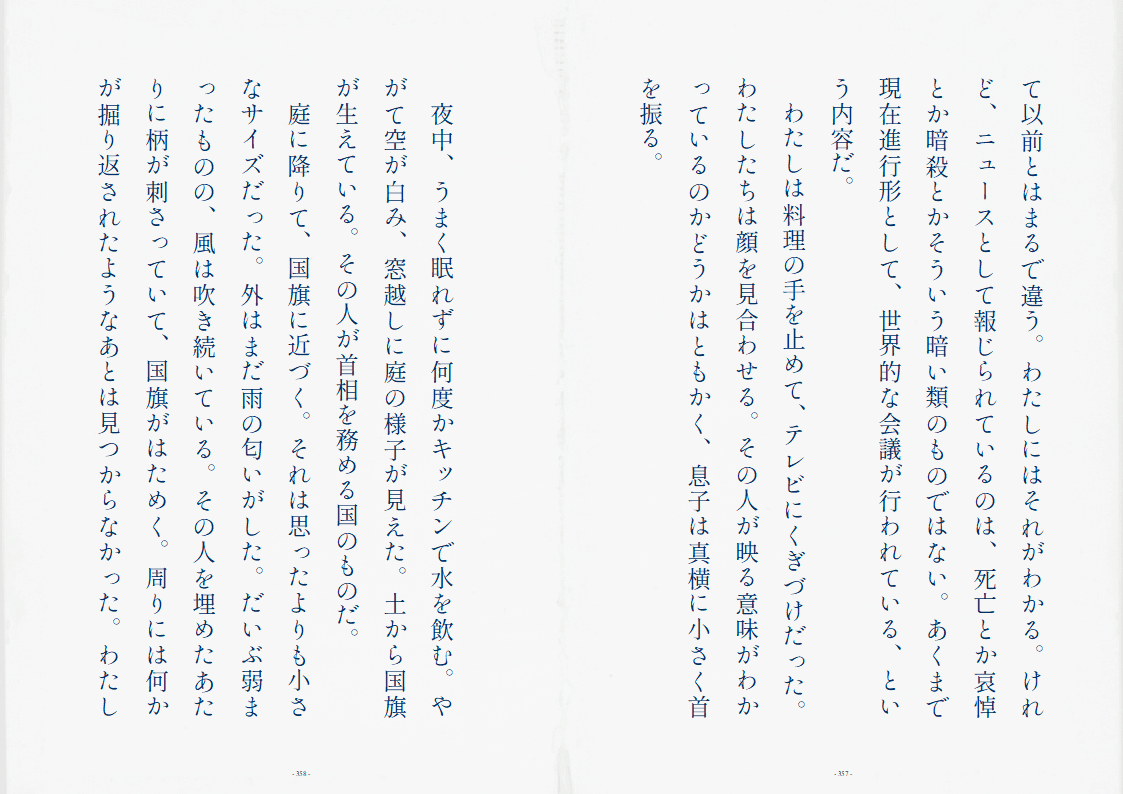 て以前とはまるで違う。わたしにはそれがわかる。けれ
ど、ニュースとして報じられているのは、死亡とか哀悼
とか暗殺とかそういう暗い類のものではない。あくまで
現在進行形として、世界的な会議が行われている、とい
う内容だ。
わたしは料理の手を止めて、テレビにくぎづけだった。
わたしたちは顔を見合わせる。その人が映る意味がわか
っているのかどうかはともかく、息子は真横に小さく首
を振る。
- 357 -
夜中、うまく眠れずに何度かキッチンで水を飲む。や
がて空が白み、窓越しに庭の様子が見えた。土から国旗
が生えている。その人が首相を務める国のものだ。
庭に降りて、国旗に近づく。それは思ったよりも小さ
なサイズだった。外はまだ雨の匂いがした。だいぶ弱ま
ったものの、風は吹き続いている。その人を埋めたあた
りに柄が刺さっていて、国旗がはためく。周りには何か
が掘り返されたようなあとは見つからなかった。わたし
- 358 -